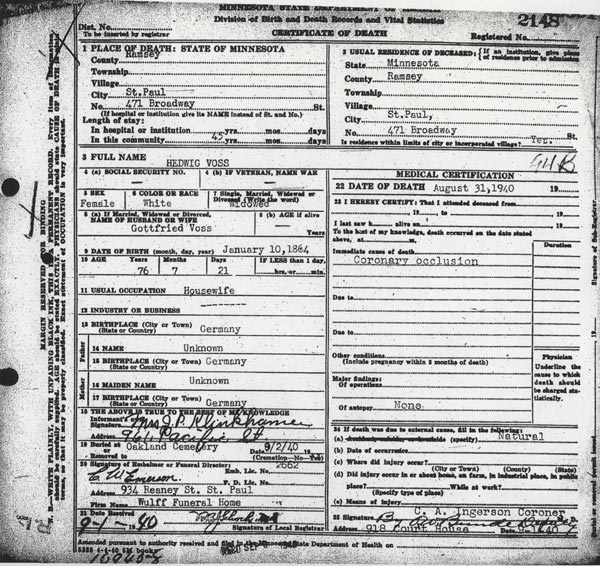 MINNESOTA STATE DEPARTMENT OF
Division of Birth and Death Records and Vital Statistics
CERTIFICATE OF DEATH
Dist. No.
To be inserted by registrar
2148
Registered No.
1 PLACE OF DEATH: STATE OF MINNESOTA
County Ramsey
Township
Village
City St.Paul
No. 471 Broadway St.
(If hospital or institution give its NAME instead of St. and No.)
Length of stay:
In hospital or institution yrs. mos. days
In this community 45 yrs. mos. days
2 USUAL RESIDENCE OF DECEASED: (If an institution, give place of residence prior to admission
State Minnesota
County Ramsey
Township
Village
City St.Paul,
No. 471 Broadway St.
Is residence within limits of city or incorporated village? Yes.
3 FULL NAME HEDWIG VOSS
4 (a) SOCIAL SECURITY NO.
4 (b) IF VETERAN, NAME WAR
5 SEX Female
6 COLOR OR RACE White
7 Single, Married, Widowed or Divorced (Write the word) Widowed
8 (a) If Married, Widowed or Divorced, NAME OF HUSBAND OR WIFE Gottfried Voss
8 (b) AGE if alive Years
9 DATE OF BIRTH (month, day, year) January 10,1864
10 AGE Years 76 Months 7 Days 21 IF LESS than 1 day, hrs. or min.
11 USUAL OCCUPATION Housewife
12 INDUSTRY OR BUSINESS
13 BIRTHPLACE (City or Town) (State or Country) Germany
Father
14 NAME Unknown
15 BIRTHPLACE (City or Town) (State or Country) Germany
Mother
16 MAIDEN NAME Unknown
17 BIRTHPLACE (City or Town) (State or Country) Germany
18 THE ABOVE IS TRUE TO THE BEST OF MY KNOWLEDGE
Informant's Signature Mrs J. P. Klinkhamer
Address 961 Pacific St
19 Buried at Oakland Cemetery Date 9/2/40
Removed to (Cremation—No
20 Signature of Embalmer or Funeral Director: Emb. Lic. No. 2662
C W Emerson F. D. Lic. No.
Address 934 Reaney St. St. Paul
Firm Name Wulff Funeral Home
21 Date Received 9-1-1940
Signature of Local Registrar
MEDICAL CERTIFICATION
22 DATE OF DEATH August 31,1940 19
23 I HEREBY CERTIFY, That I attended deceased from
19 to 19
I last saw h alive on 19
To the best of my knowledge, death occurred on the date stated above, at m.
Duration
Immediate cause of death
Coronary occlusion
Due to
Due to
Other conditions
(Include pregnancy within 3 months of death)
Major findings:
Of operations
Of autopsy None
Physician
Underline the cause to which death should be charged statistically.
24 If death was due to external cause, fill in the following:
(a) (specify) Natural
(b) Date of occurrence
(c) Where did injury occur?
(City or Town) (County) (State)
(d) Did injury occur in or about home, on farm, in industrial place, in public place?
While at work?
(Specify type of place)
(e) Means of injury
C. A. Ingerson Coroner
Address 918 Court House
Amended pursuant to authority received and filed in the Minnesota State Department of Health on
MARGIN RESERVED FOR BINDING